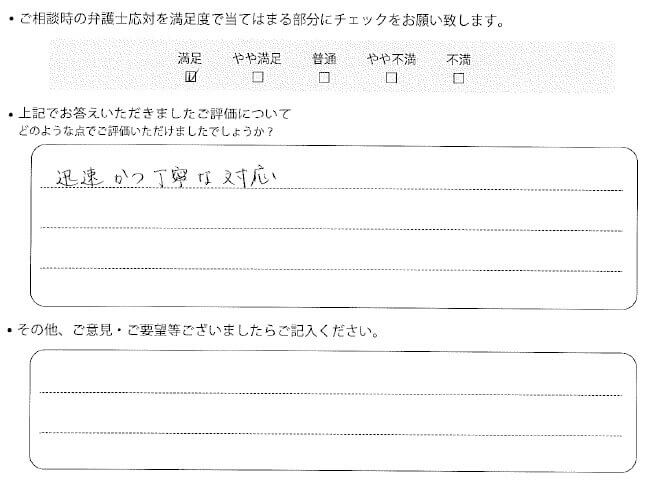 • ご相談時の弁護士応対を満足度で当てはまる部分にチェックをお願い致します。
満足 やや満足 普通 やや不満 不満
☑ ☐ ☐ ☐ ☐
• 上記でお答えいただきましたご評価について
どのような点でご評価いただけましたでしょうか？
迅速かつ丁寧な対応
• その他、ご意見・ご要望等ございましたらご記入ください。